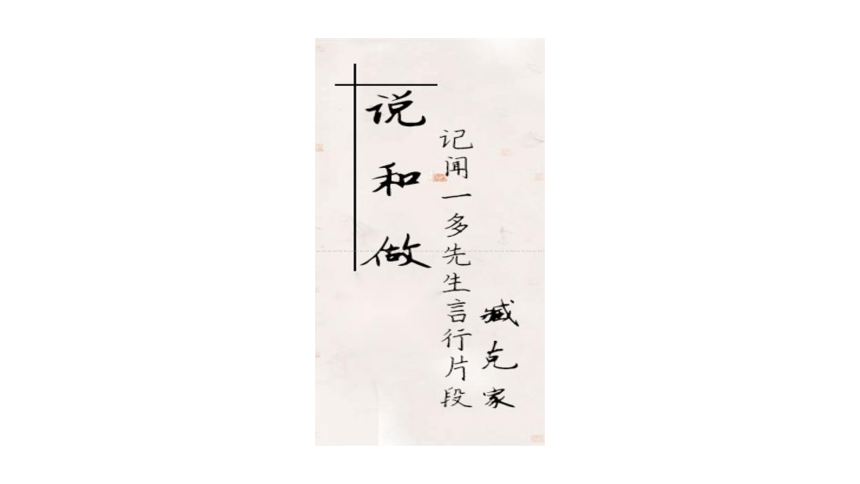 说和做
记闻一多先生言行片段
臧克家